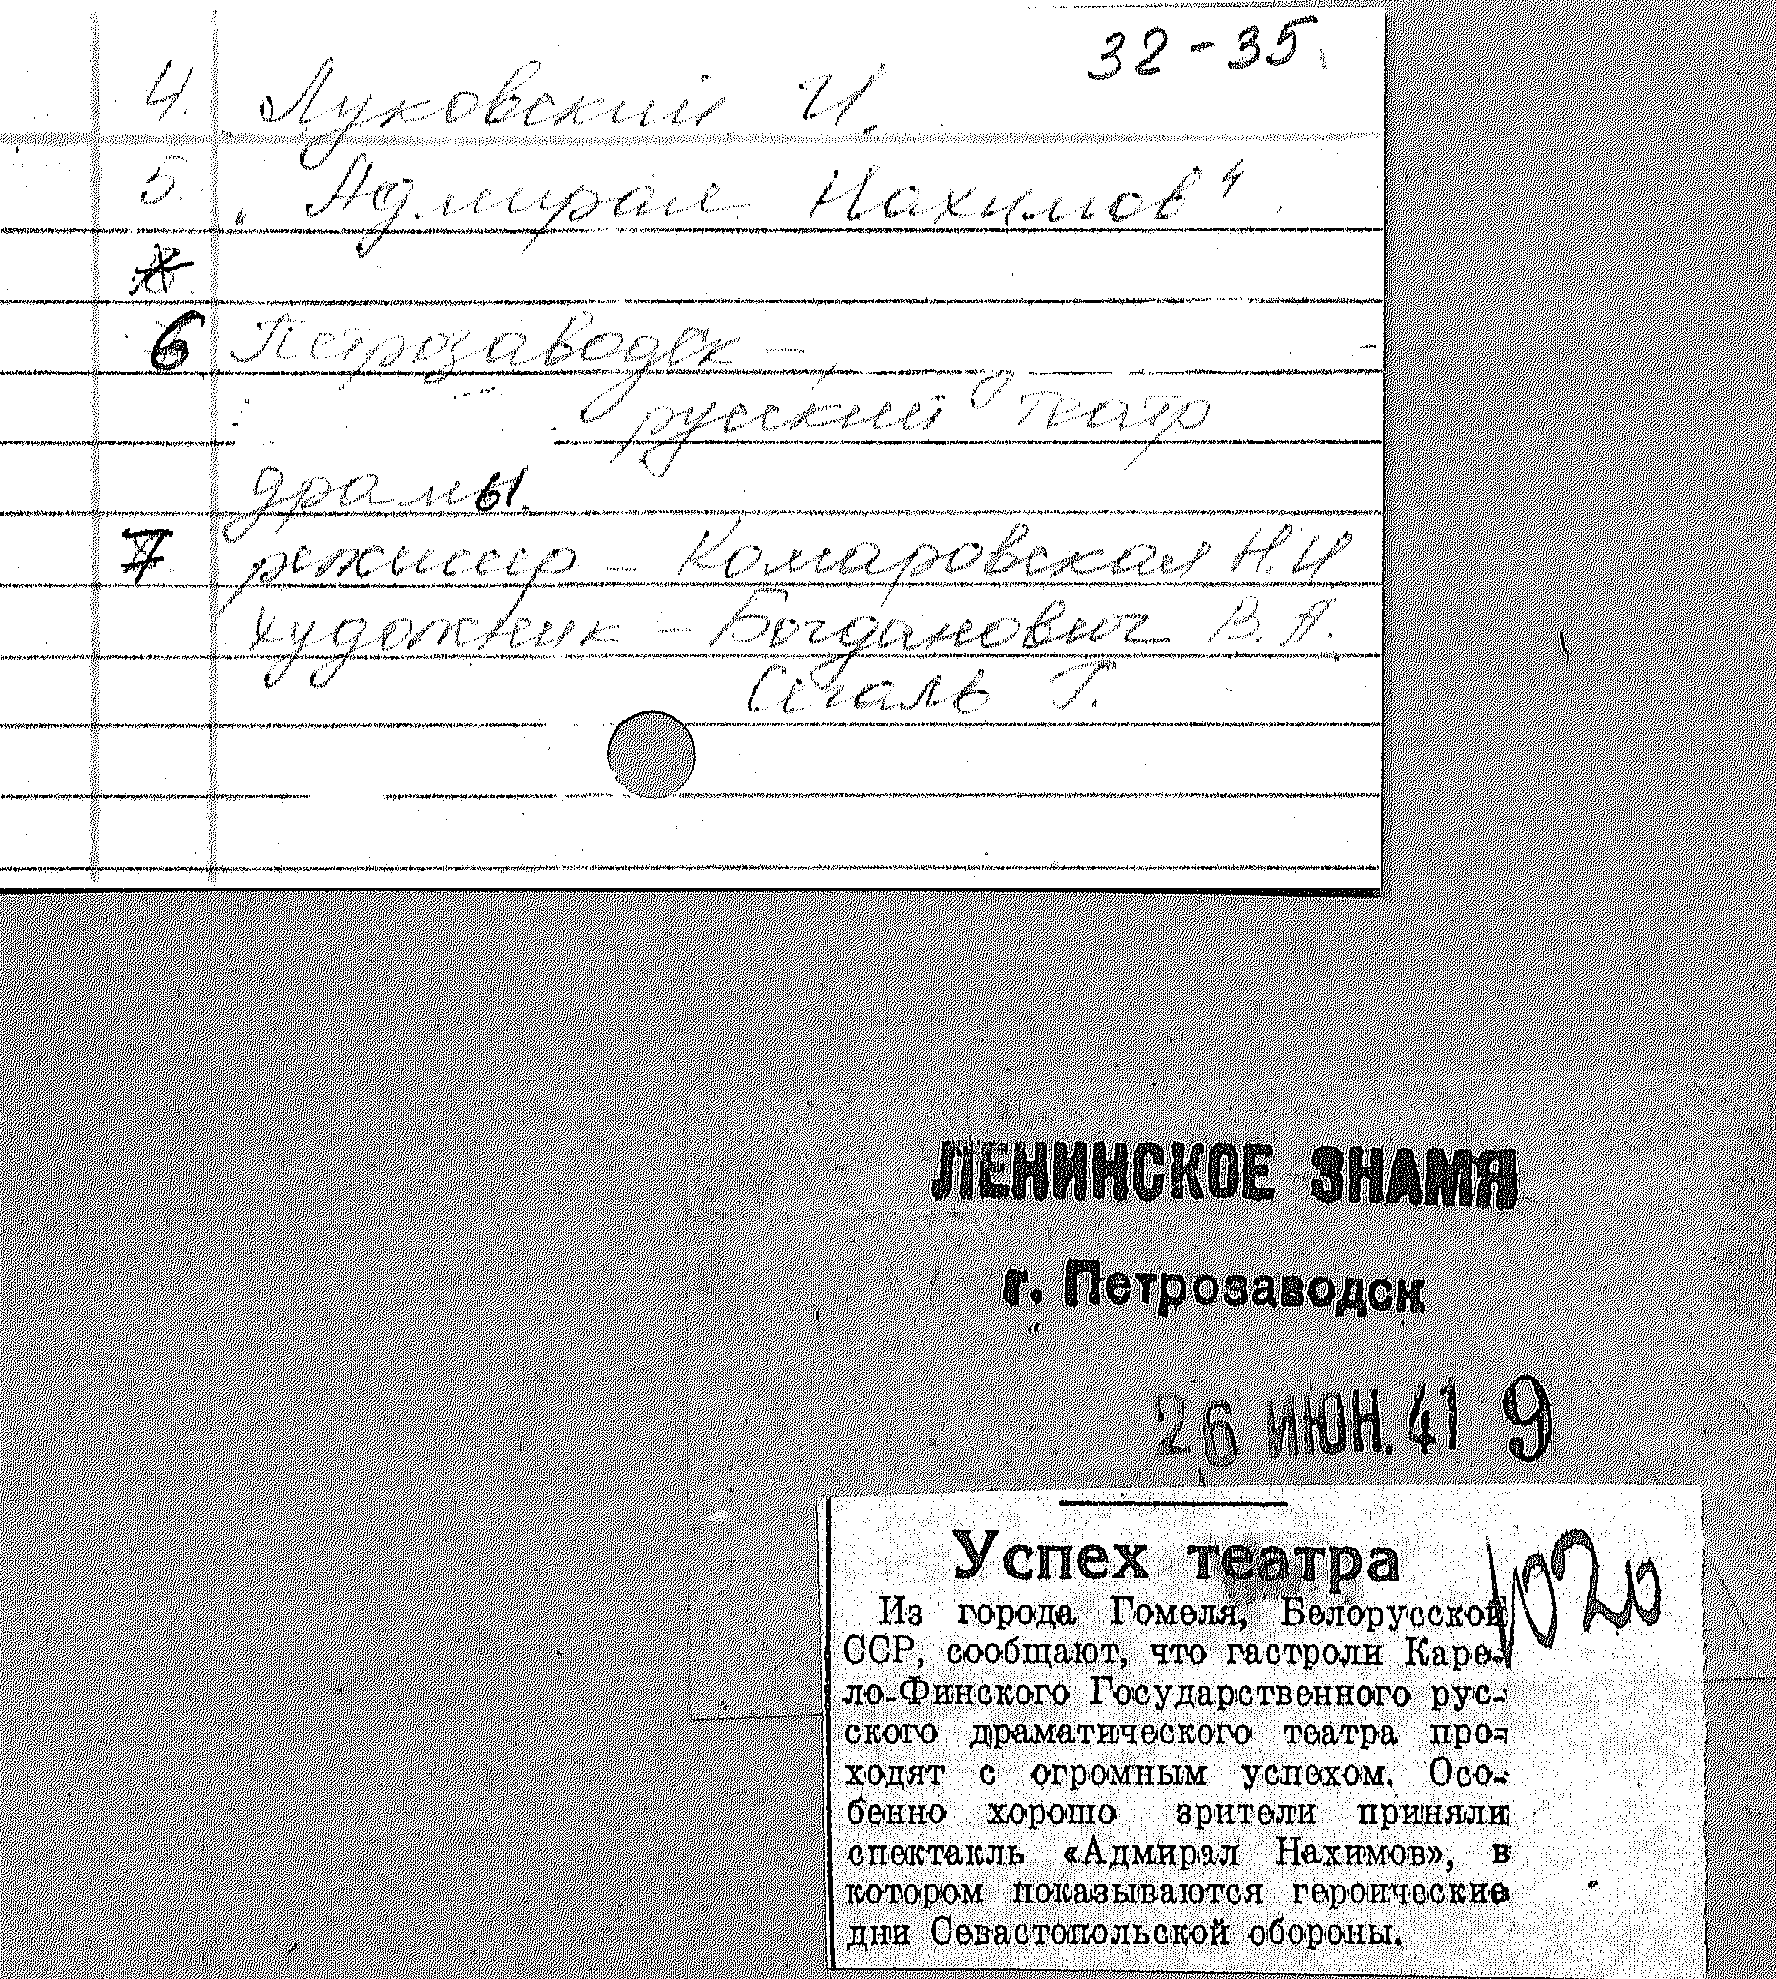 32-35
4. Луковский И.
5. "Адмирал Нахимов".
6 Петрозаводск –
русский театр
драмы.
7 режиссер – Комаровская Н.И
художник – Богданович В.А.
Сегаль Г.
ЛЕНИНСКОЕ ЗНАМЯ
г. Петрозаводск
26 ИЮН. 41 9
Успех театра
1020
Из города Гомеля, Белорусской
ССР, сообщают, что гастроли Каре-
ло-Финского Государственного рус-
ского драматического театра про-
ходят с огромным успехом. Осо-
бенно хорошо зрители приняли
спектакль «Адмирал Нахимов», в
котором показываются героические
дни Севастопольской обороны.